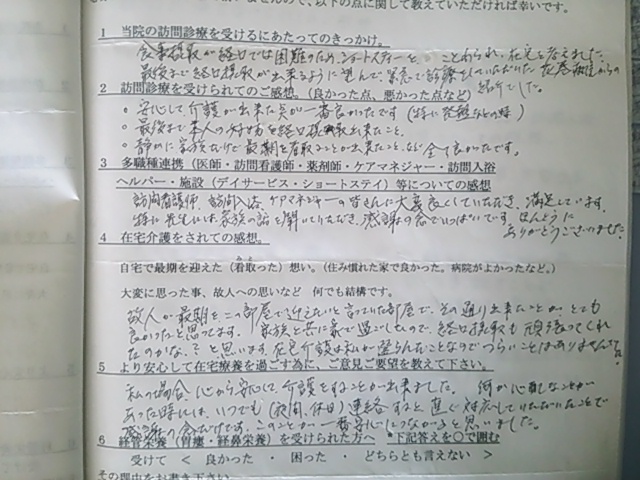 ませんので、以下の点に関して教えていただければ幸いです。
1 当院の訪問診療を受けるにあたってのきっかけ。
食事摂取が経口では困難のため、ショートステーを ことわられ、在宅を考えました。
最後まで経口摂取が出来るように望んで、緊急で診療をしていただいた
紹介でした。
2 訪問診療を受けられてのご感想。（良かった点、悪かった点など）
・安心して介護が出来た点が一番良かったです（特に 発熱などの時）
・最後まで本人の好物を経口摂取出来たこと。
・静かに家族だけで最期を看取ることが出来たこと、など 全て良かったです。
3 多職種連携（医師・訪問看護師・薬剤師・ケアマネジャー・訪問入浴
ヘルパー・施設（デイサービス・ショートステイ）等についての感想
訪問看護師、訪問入浴、ケアマネジャーの皆さんに大変良くしていただき、満足しています。
特に先生には、家族の話を聞いていただき、感謝の念でいっぱいです。ほんとうに
ありがとうございました。
4 在宅介護をされての感想。
自宅で最期を迎えた（看取った）想い。（住み慣れた家で良かった。病院がよかったなど。）
大変に思った事、故人への思いなど 何でも結構です。
故人が最期をこの部屋で迎えたいと言っていた部屋で、その通り出来たことが とても
良かったと思ってます。 家族と共に家で過ごしたので、経口摂取も 頑張ってくれ
たのかな？と思います。在宅介護は私が望んだことなのでつらいことはありませんでした。
5 より安心して在宅療養を過ごす為に、ご意見ご要望を教えて下さい。
私の場合、心から安心して、介護をすることが出来ました。 何か心配なことが
あった時には、いつでも（夜間、休日）連絡すると、直ぐ対応していただいたことで
感謝の念だけです。このことが一番安心につながると思いました。
6 経管栄養（胃瘻・経鼻栄養）を受けられた方へ *下記答えを〇で囲む
受けて ＜ 良かった ・ 困った ・ どちらとも言えない ＞
その理由をお書き下さい